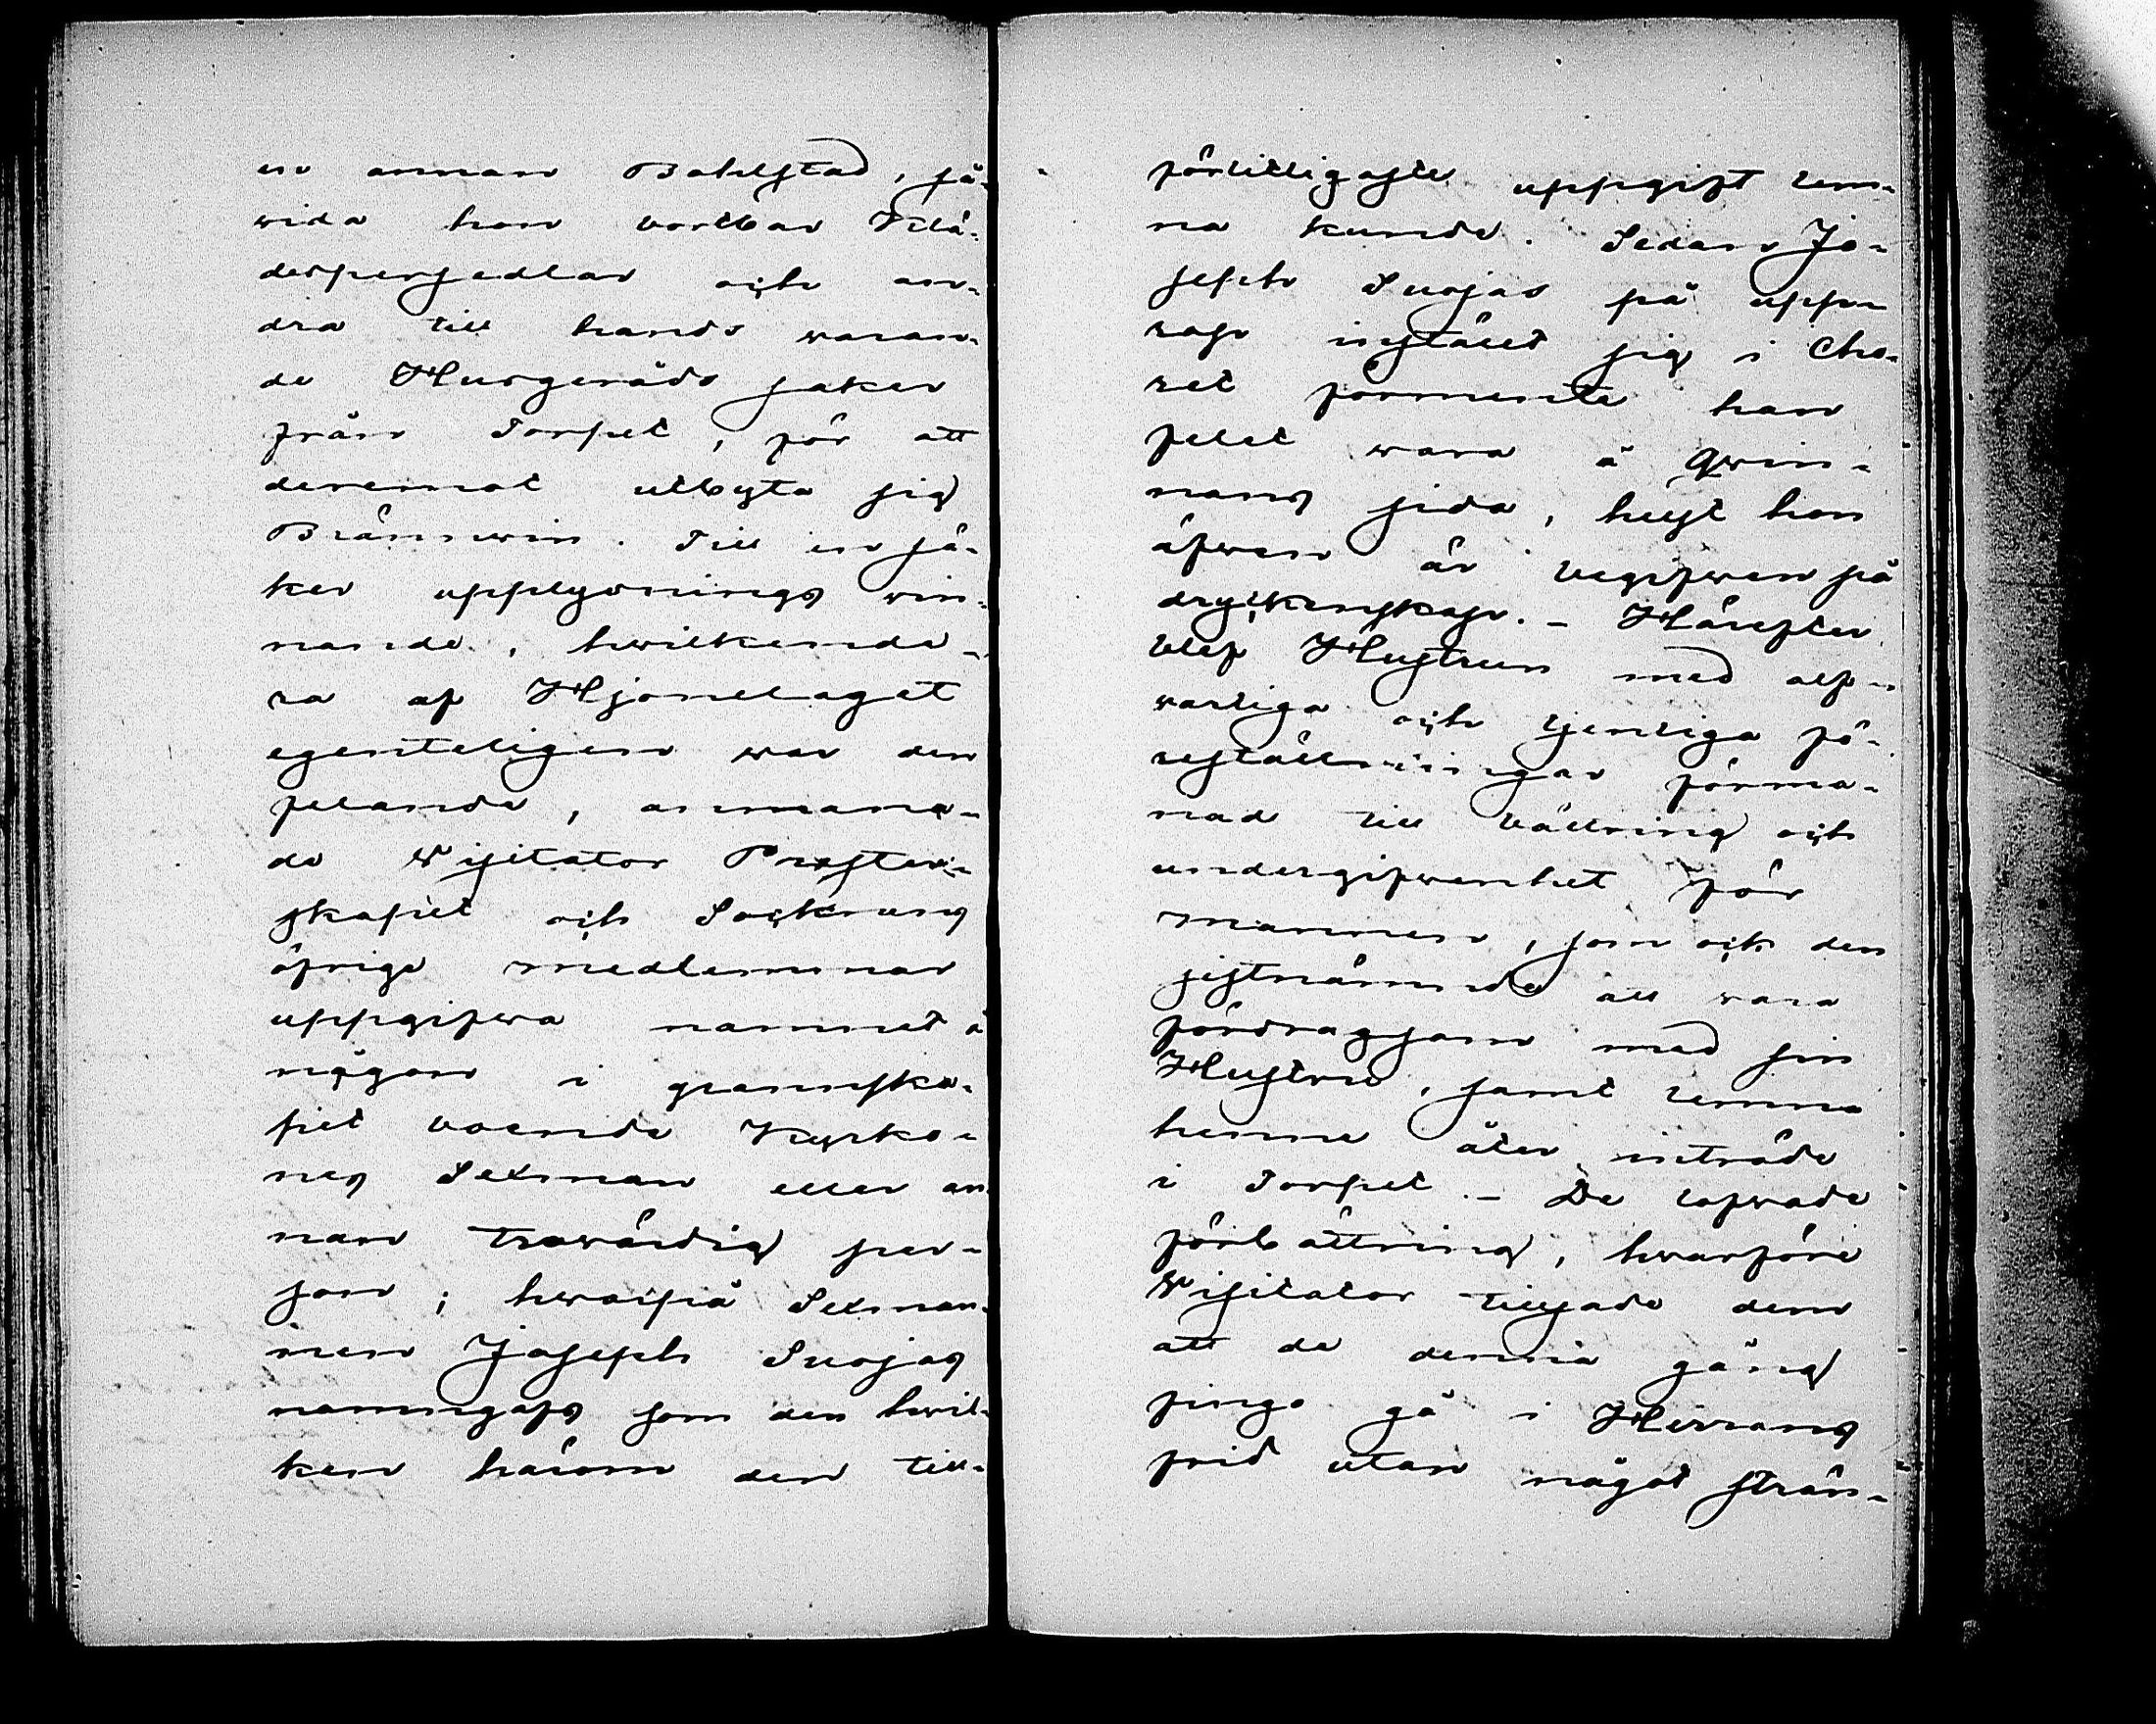 en annan Bohlstad, så-
wida hon bortbar Klä-
despersedlar och an-
dra till hands waran-
de Husgeråds saker
från Torpet, för att
deremot utbyta sig
Brännwin. Till en sä-
ker upplysnings win-
nande, hwilkende-
ra af Hjonelaget
egenteligen war den
felande, anmana-
de Wisitator Prester-
skapet och Socknens
öfrige medlemmar
uppgifwa namnet å
någon i grannska-
pet boende Kyrko-
nes Sexman eller an
nan trowärdig per-
son; hwarpå Sexman-
nen Joseph Suojas
namngafs som den hwil-
ken härom den till-
förlitligaste uppgift lem-
na kunde. Sedan Jo-
seph Suojas på upp-
rop instäldt sig i Cho-
ret förmente han
felet wara å Qwin-
nans sida, helst hon
äfwen är begifwen på
dryckenskap. - Härefter
blef Hustrun med alf-
warliga och tjenliga fö-
reställningar förma-
nad till bättring och
undergifwenhet för
mannen, som ock den
sistnämnde att wara
fördragsam med sin
Hustru, samt lemna
henne åter inträde
i Torpet. - De lofwade
förbättring, hwarföre
Wisitator tillsade dem
att de denna gång
fingo gå i Herrans
frid utan något strän-